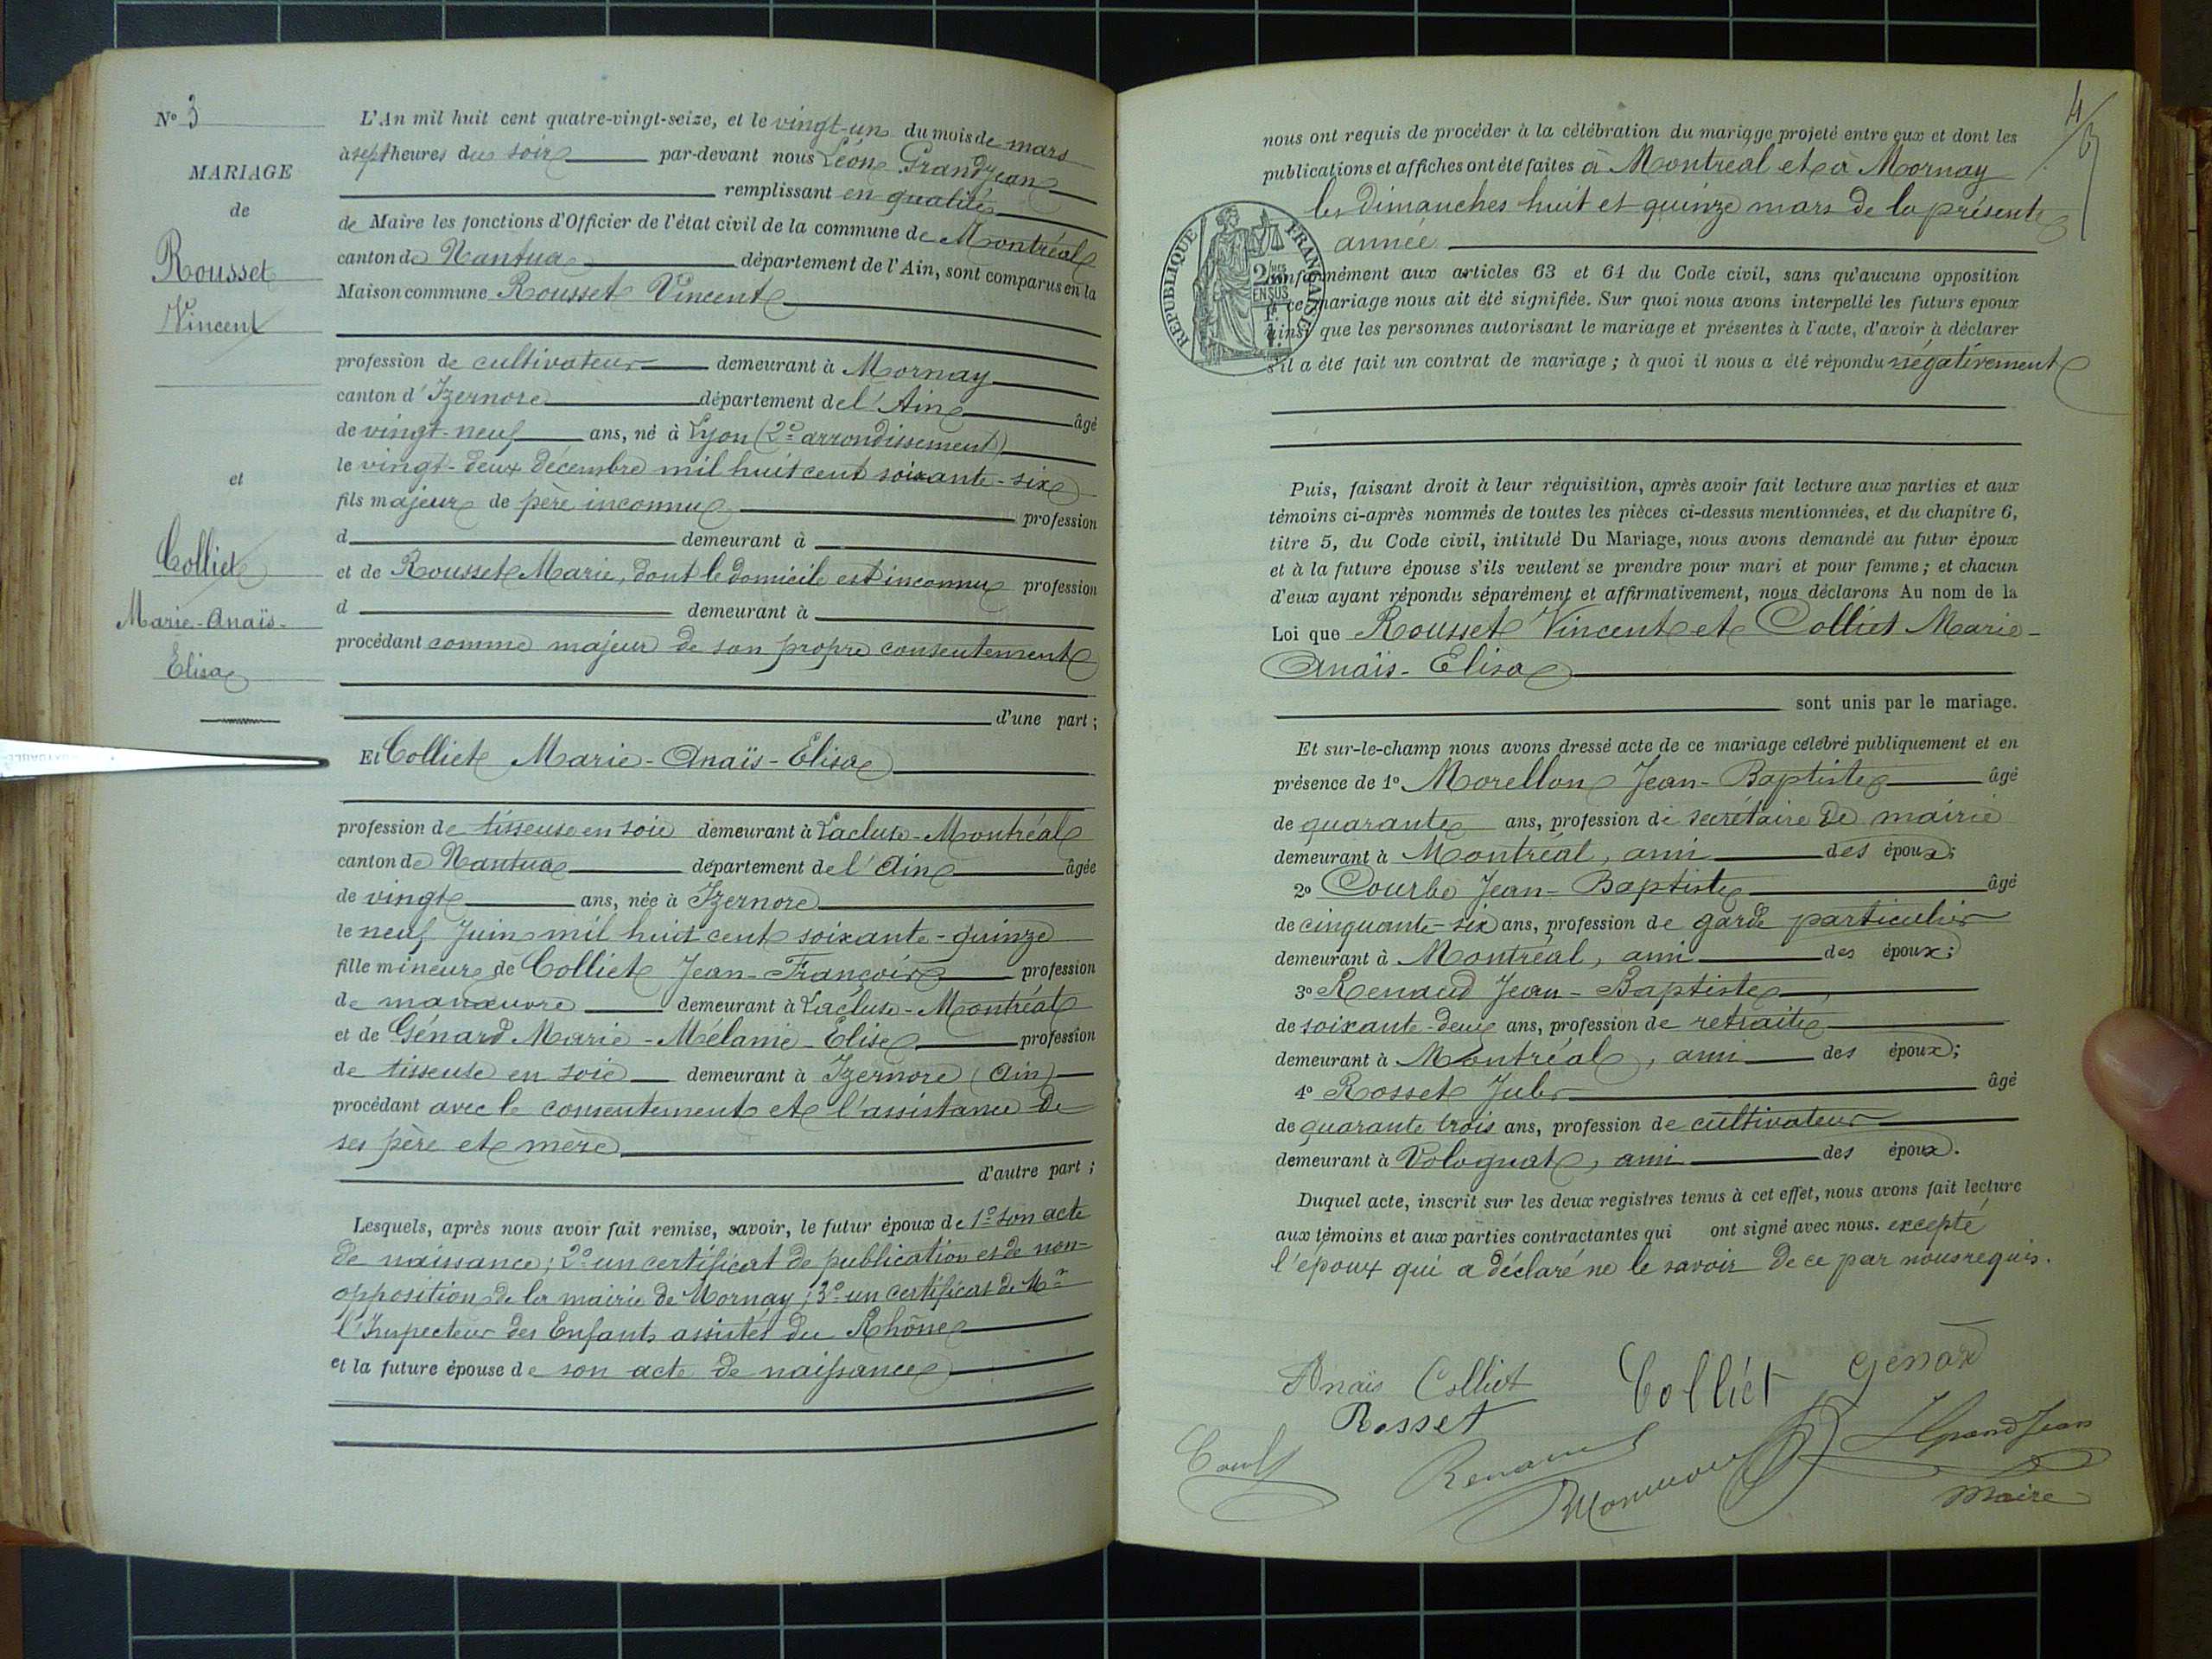 N° 3
MARIAGE
de
Rousset
Vincent
et
Colliet
Marie-Anaïs-
Elisa
L'An mil huit cent quatre-vingt-seize, et le vingt-un du mois de mars
à sept heures du soir par-devant nous Léon Grandjean
remplissant en qualité
de Maire les fonctions d'Officier de l'état civil de la commune de Montréal
canton de Nantua département de l'Ain, sont comparus en la
Maison commune Rousset Vincent
profession de cultivateur demeurant à Mornay
canton d'Izernore département de l'Ain âgé
de vingt-neuf ans, né à Lyon (2e arrondissement)
le vingt-deux décembre mil huit cent soixante-six
fils majeur de père inconnu profession
d demeurant à
et de Rousset Marie, dont le domicile est inconnu profession
d demeurant à
procédant comme majeur de son propre consentement
d'une part ;
Et Colliet Marie-Anaïs-Elisa
profession de tisseuse en soie demeurant à Lacluse-Montréal
canton de Nantua département de l'Ain âgée
de vingt ans, née à Izernore
le neuf Juin mil huit cent soixante-quinze
fille mineure de Colliet Jean-François profession
de manœuvre demeurant à Lacluse-Montréal
et de Génard Marie-Mélanie-Elise profession
de tisseuse en soie demeurant à Izernore (Ain)
procédant avec le consentement et l'assistance de
ses père et mère
d'autre part ;
Lesquels, après nous avoir fait remise, savoir, le futur époux de 1° son acte
de naissance ; 2° un certificat de publication et de non-
opposition de la mairie de Mornay ; 3° un certificat de Mr
l'Inspecteur des Enfants assistés du Rhône
et la future épouse de son acte de naissance
4
nous ont requis de procéder à la célébration du mariage projeté entre eux et dont les
publications et affiches ont été faites à Montréal et à Mornay
les dimanches huit et quinze mars de la présente
année
RÉPUBLIQUE FRANÇAISE
2/10es
EN SUS
conformément aux articles 63 et 64 du Code civil, sans qu'aucune opposition
à ce mariage nous ait été signifiée. Sur quoi nous avons interpellé les futurs époux
ainsi que les personnes autorisant le mariage et présentes à l'acte, d'avoir à déclarer
s'il a été fait un contrat de mariage ; à quoi il nous a été répondu négativement
Puis, faisant droit à leur réquisition, après avoir fait lecture aux parties et aux
témoins ci-après nommés de toutes les pièces ci-dessus mentionnées, et du chapitre 6,
titre 5, du Code civil, intitulé Du Mariage, nous avons demandé au futur époux
et à la future épouse s'ils veulent se prendre pour mari et pour femme ; et chacun
d'eux ayant répondu séparément et affirmativement, nous déclarons Au nom de la
Loi que Rousset Vincent et Colliet Marie-
Anaïs-Elisa
sont unis par le mariage.
Et sur-le-champ nous avons dressé acte de ce mariage célébré publiquement et en
présence de 1° Morellon Jean-Baptiste âgé
de quarante ans, profession de secrétaire de mairie
demeurant à Montréal, ami des époux ;
2° Courbe Jean-Baptiste âgé
de cinquante-six ans, profession de garde particulier
demeurant à Montréal, ami des époux ;
3° Renaud Jean-Baptiste
de soixante-deux ans, profession de retraité
demeurant à Montréal, ami des époux ;
4° Rosset Jules âgé
de quarante trois ans, profession de cultivateur
demeurant à Volognat, ami des époux.
Duquel acte, inscrit sur les deux registres tenus à cet effet, nous avons fait lecture
aux témoins et aux parties contractantes qui ont signé avec nous. excepté
l'époux qui a déclaré ne le savoir de ce par nous requis.
Anaïs Colliet Colliet Genard
Rosset
Renaud
LGrandJean
Maire